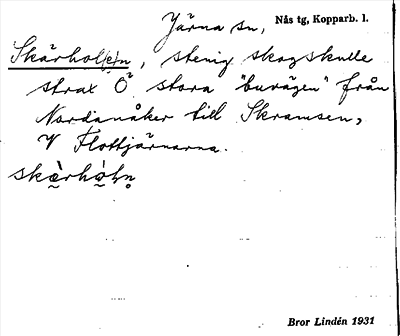 Järna sn, Nås tg, Kopparb. l.
Skärhol(e)n, stenig skogskulle
strax Ö stora "buvägen" från
Nordanåker till Skramsen,
V Flottjärnarna.
Bror Lindén 1931